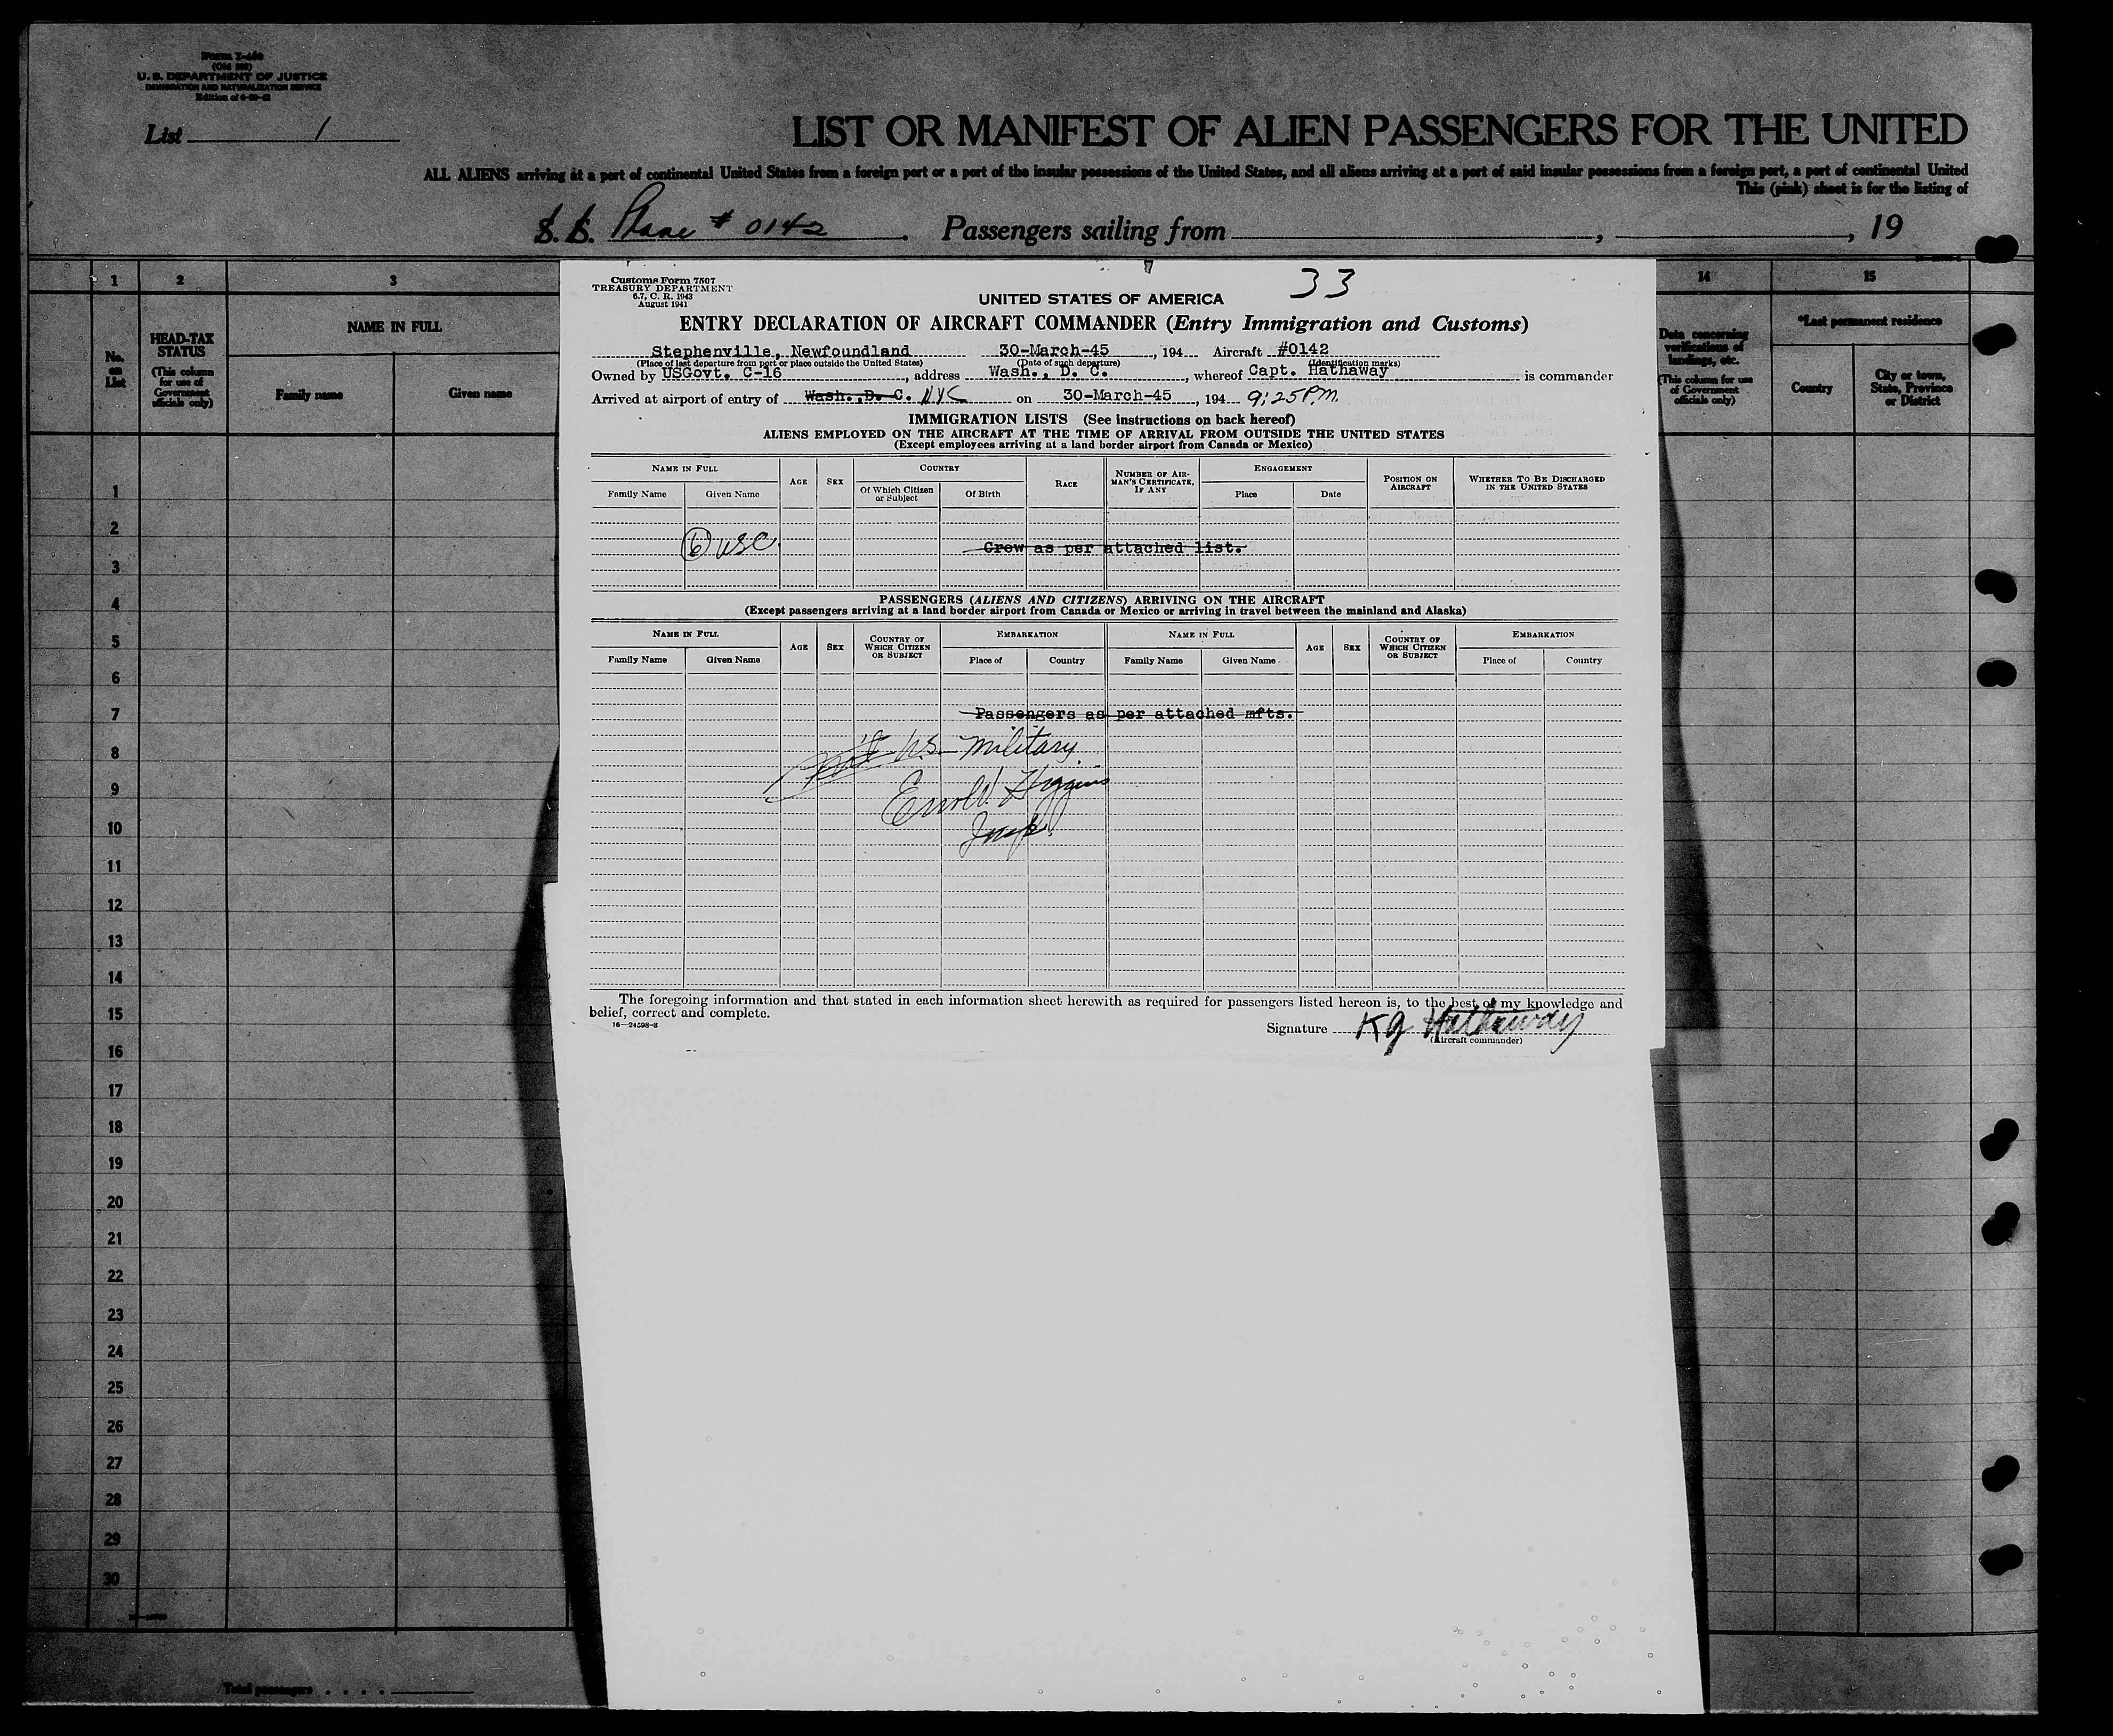 Form I-466
(Old 500)
U. S. DEPARTMENT OF JUSTICE
IMMIGRATION AND NATURALIZATION SERVICE
List 1
LIST OR MANIFEST OF ALIEN PASSENGERS FOR THE UNITED
ALL ALIENS arriving at a port of continental United States from a foreign port or a port of the insular possessions of the United States, and all aliens arriving at a port of said insular possessions from a foreign port, a port of continental United
This (pink) sheet is for the listing of
S. S. Plane # 0142. Passengers sailing from , , 19
1 2 3 14 15
No. on List
HEAD-TAX STATUS
(This column for use of Government officials only)
NAME IN FULL
Family name Given name
Data concerning verifications of landings, etc.
(This column for use of Government officials only)
*Last permanent residence
Country City or town, State, Province or District
Customs Form 7507
TREASURY DEPARTMENT
6.7, C. R. 1943
August 1941
33
UNITED STATES OF AMERICA
ENTRY DECLARATION OF AIRCRAFT COMMANDER (Entry Immigration and Customs)
Stephenville, Newfoundland 30-March-45, 194 Aircraft #0142
(Place of last departure from port or place outside the United States) (Date of such departure) (Identification marks)
Owned by USGovt. C-16, address Wash., D. C., whereof Capt. Hathaway is commander
Arrived at airport of entry of Wash. ,D. C. NYC on 30-March-45, 194 9:25 P.M.
IMMIGRATION LISTS (See instructions on back hereof)
ALIENS EMPLOYED ON THE AIRCRAFT AT THE TIME OF ARRIVAL FROM OUTSIDE THE UNITED STATES
(Except employees arriving at a land border airport from Canada or Mexico)
NAME IN FULL AGE SEX COUNTRY RACE NUMBER OF AIRMAN'S CERTIFICATE, IF ANY ENGAGEMENT POSITION ON AIRCRAFT WHETHER TO BE DISCHARGED IN THE UNITED STATES
Family Name Given Name Of Which Citizen or Subject Of Birth Place Date
6 USC.
Crew as per attached list.
PASSENGERS (ALIENS AND CITIZENS) ARRIVING ON THE AIRCRAFT
(Except passengers arriving at a land border airport from Canada or Mexico or arriving in travel between the mainland and Alaska)
NAME IN FULL AGE SEX COUNTRY OF WHICH CITIZEN OR SUBJECT EMBARKATION NAME IN FULL AGE SEX COUNTRY OF WHICH CITIZEN OR SUBJECT EMBARKATION
Family Name Given Name Place of Country Family Name Given Name Place of Country
Passengers as per attached mfts.
U.S. Military
Errol Higgins
Insp.
The foregoing information and that stated in each information sheet herewith as required for passengers listed hereon is, to the best of my knowledge and
belief, correct and complete.
16—24598-2
Signature KG Hathaway
(Aircraft commander)
1
2
3
4
5
6
7
8
9
10
11
12
13
14
15
16
17
18
19
20
21
22
23
24
25
26
27
28
29
30
Total passengers . . . .